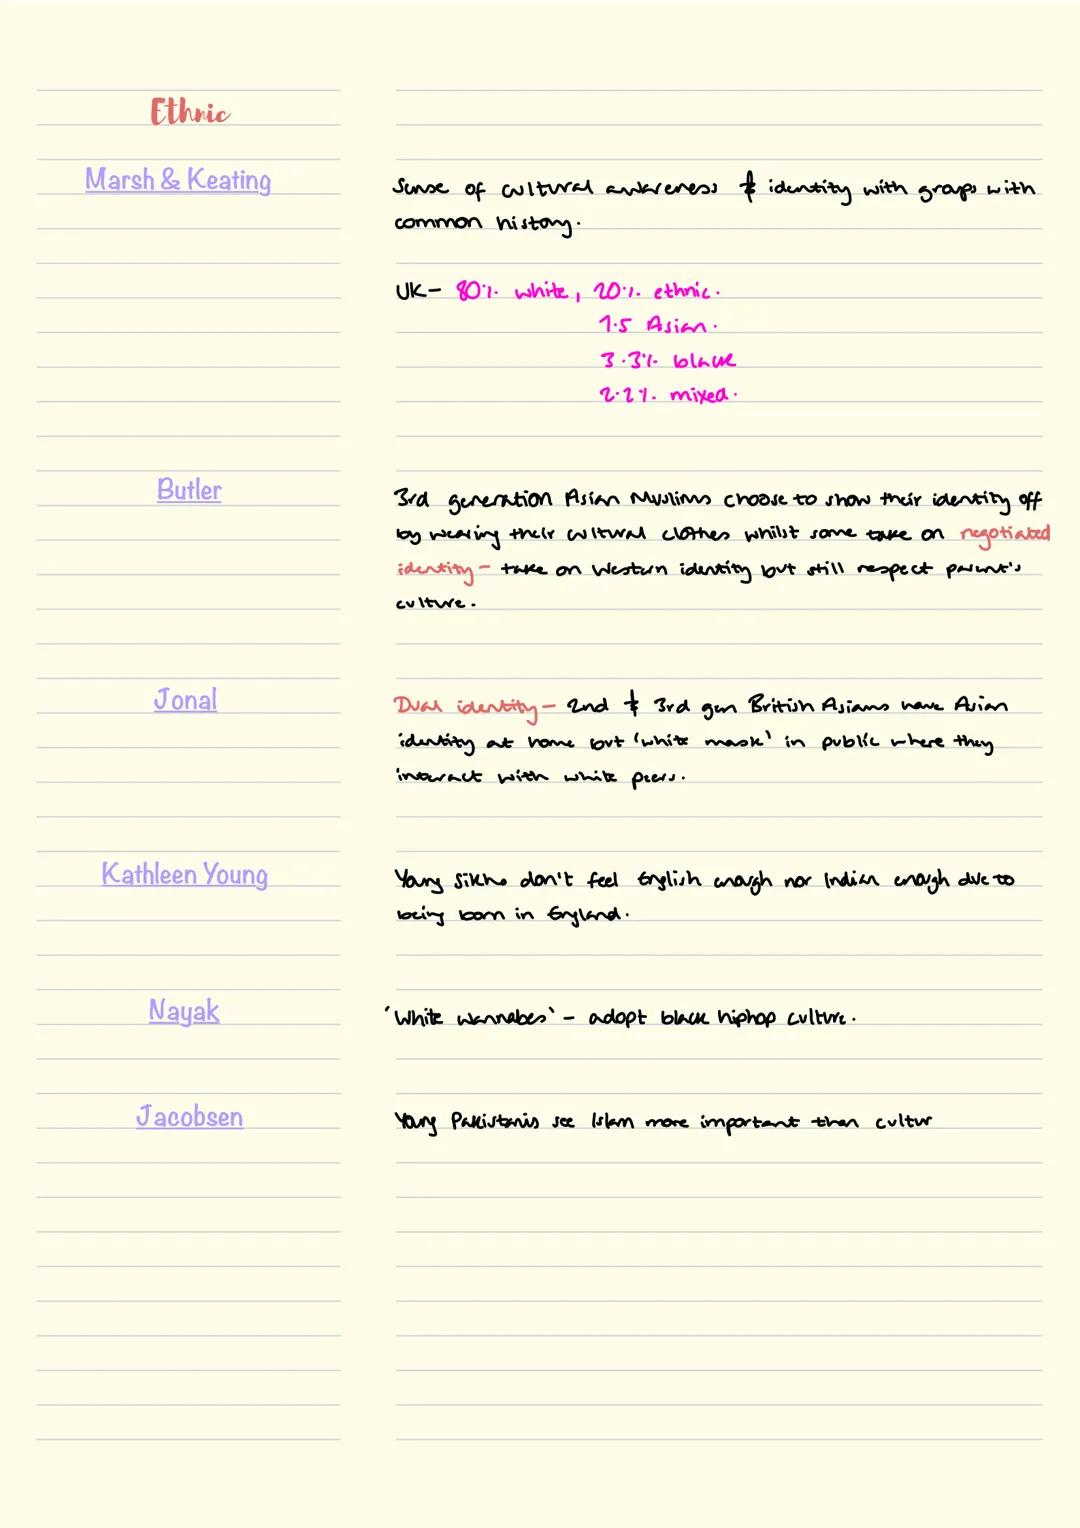 Ethnic
Marsh & Keating
Sense of cultural awareness & identity with groups with
common history.
UK- 80%. white, 20%. ethnic.
7.5 Asian.
3.3% black
2.2%. mixed.
Butler
3rd generation Asian Muslims choose to show their identity off
by wearing their cultural clothes whilst some take on negotiated
identity - take on Western identity but still respect parent's
culture.
Jonal
Dual identity - 2nd & 3rd gen British Asians have Asian
identity at home but 'white mask' in public where they
interact with white peers.
Kathleen Young
Young Sikhs don't feel English enough nor Indian enough due to
being born in England.
Nayak
'White wannabes' - adopt black hiphop culture.
Jacobsen
Young Pakistanis see Islam more important than cultur